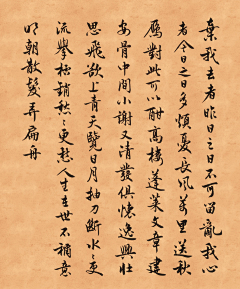 棄我去者昨日之日不可留亂我心
者今日之日多煩憂長風萬里送秋
鴈對此可以酣高樓蓬萊文章建
安骨中間小謝又清發俱懷逸興壯
思飛欲上青天覽日月抽刀斷水〻更
流舉杯銷愁〻更愁人生在世不稱意
明朝散髮弄扁舟